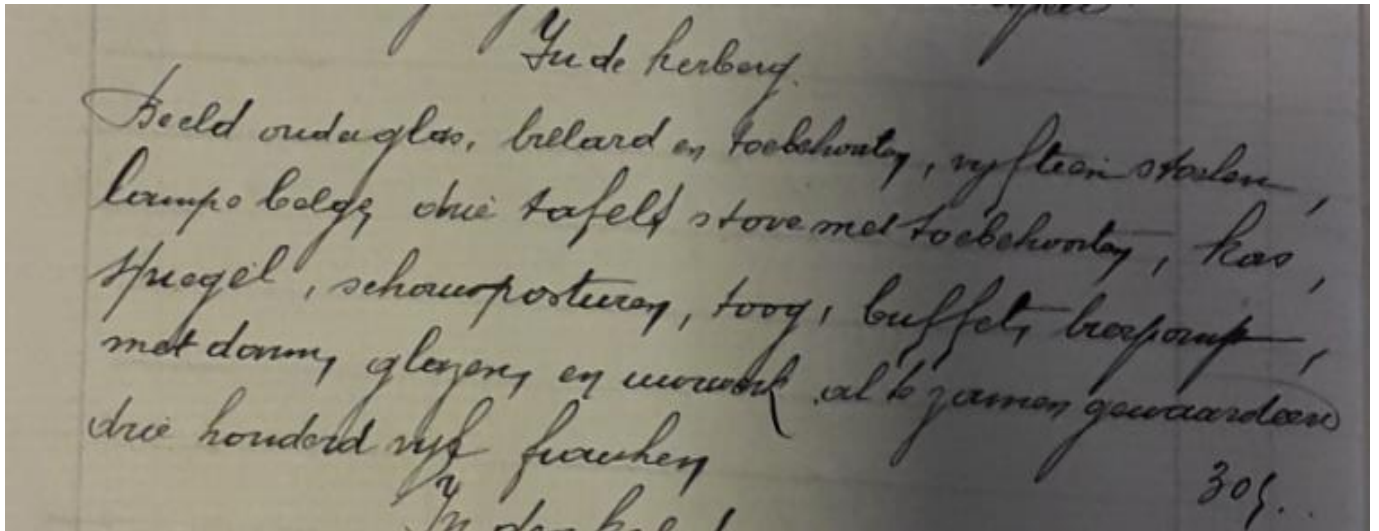 In de herberg.
Beeld onder glas, billard en toebehoorten, vyftien stoelen,
lampe belge, drie tafels stove met toebehoorten, kas,
spiegel, schouwposturen, toog, buffet, bierpomp,
met darm, glazen, en uurwerk al te zamen gewaardeerd
drie honderd vyf franken
305..
In den